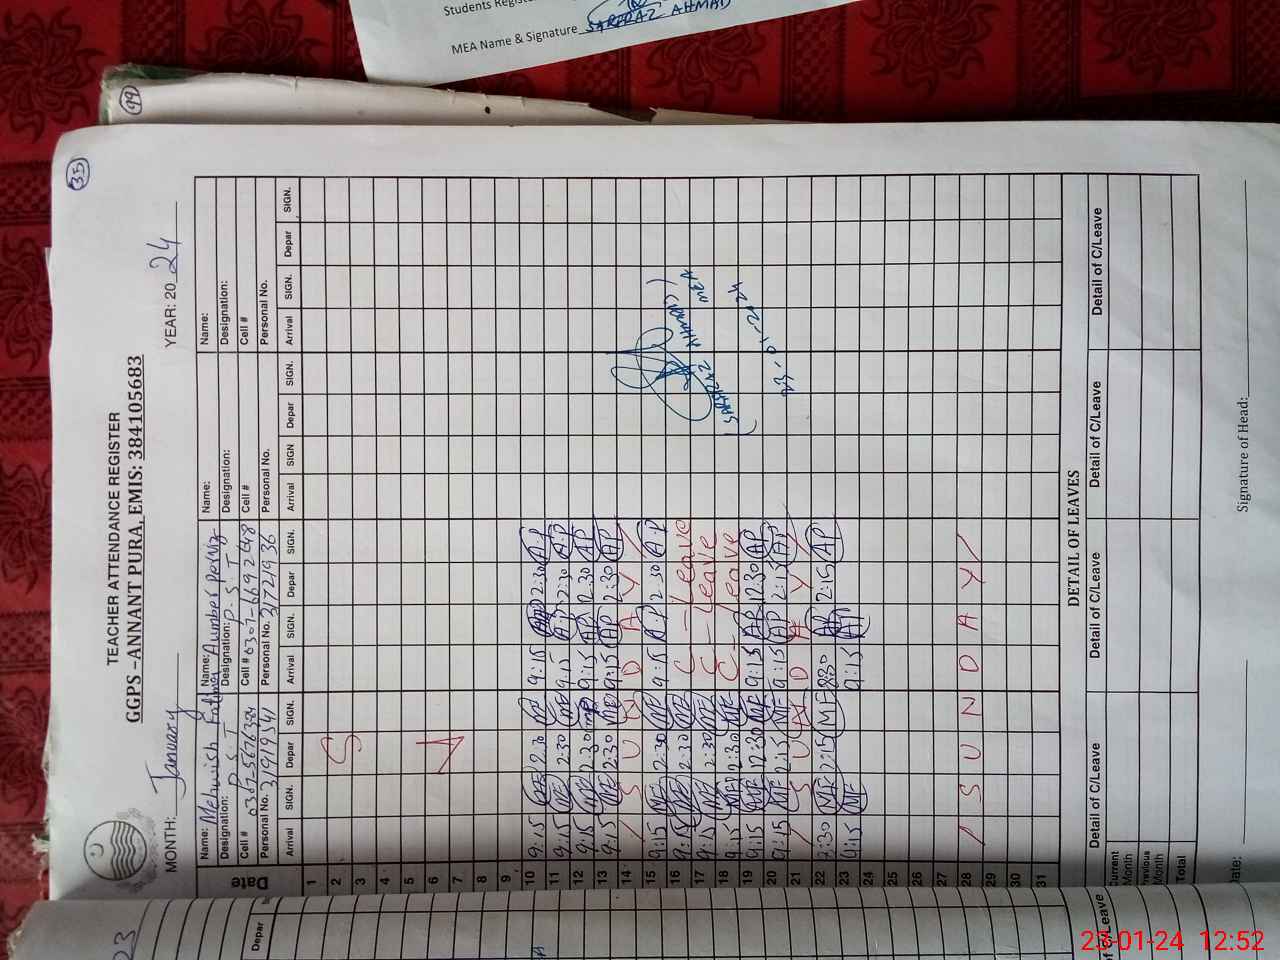 Students Regist
MEA Name & Signature SARFRAZ AHMAD
99
35
TEACHER ATTENDANCE REGISTER
GGPS -ANNANT PURA, EMIS: 384105683
MONTH: January YEAR: 20 24
Name: Mehwish Fatima Name: Name: Name:
Designation: P.S.T Designation: P.S.T Designation: Designation:
Cell # Cell # 0307-6692648 Cell # Cell #
Personal No. 31919541 Personal No. 31721936 Personal No. Personal No.
Date Arrival SIGN. Depar SIGN. Arrival SIGN. Depar SIGN. Arrival SIGN Depar SIGN. Arrival SIGN. Depar SIGN.
1
2 S
3
4
5
6 A
7
8
9
10 9:15 MF 2:30 MF 9:15 AP 2:30 A.P
11 9:15 MF 2:30 MF 9:15 A.P 2:30 A.P
12 9:15 MF 2:30 MF 9:15 AP 12:30 AP
13 9:15 MF 2:30 MF 9:15 AP 2:30 AP
14 / S U N D A Y /
15 9:15 MF 2:30 MF 9:15 A.P 2:30 A.P
16 9:15 MF 2:30 MF C - leave
17 9:15 MF 2:30 MF C - leave
18 9:15 MF 2:30 MF C - leave
19 9:15 MF 12:30 MF 9:15 AP 12:30 AP
20 9:15 MF 2:15 MF 9:15 AP 2:15 AP
21 / S U N D A Y /
22 MF 2:15 MF 8:30 AP 2:15 AP
23 9:15 MF 9:15 AP
24
25
26
27
28 / S U N D A Y /
29
30
31
(SARFRAZ AHMAD)
MEA
23-01-2024
DETAIL OF LEAVES
Detail of C/Leave Detail of C/Leave Detail of C/Leave Detail of C/Leave Detail of C/Leave
Current Month
Previous Month
Total
Date: Signature of Head:
23
Depar
of C/Leave
23-01-24 12:52